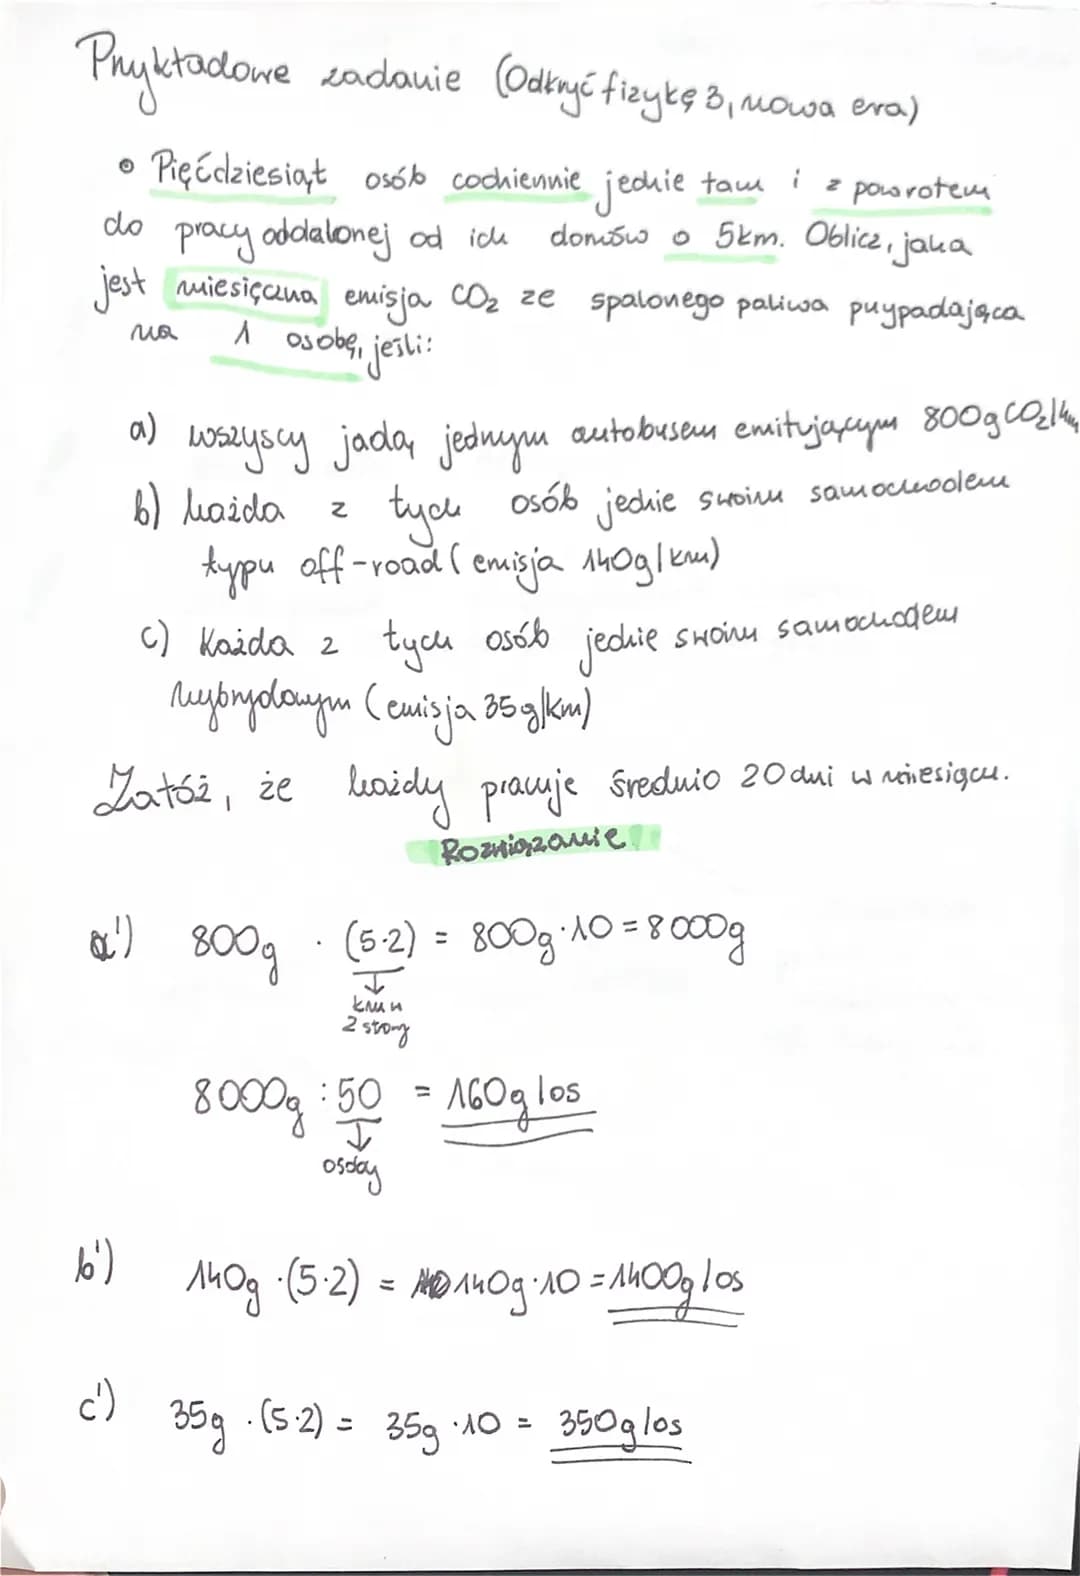 Przykładowe zadanie (Odkryć fizykę 3, nowa era)
• Pięćdziesiąt osób codziennie jedzie tam i z powrotem
do pracy oddalonej od ich domów o 5km. Oblicz, jaka
jest miesięczna emisja CO₂ ze spalonego paliwa przypadająca
na 1 osobę, jeśli:
a) wszyscy jadą jednym autobusem emitującym 800g CO₂/km
b) każda z tych osób jedzie swoim samochodem
typu off-road (emisja 140g/km)
c) Każda z tych osób jedzie swoim samochodem
hybrydowym (emisja 35g/km)
Załóż, że każdy pracuje średnio 20 dni w miesiącu.
Rozwiązanie
a') 800g · (5·2) = 800g·10 = 8000g
km w
2 strony
8000g : 50 = 160g/os
osoby
b') 140g ·(5·2) = 140g·10 = 1400g/os
c') 35g ·(5·2) = 35g ·10 = 350g/os